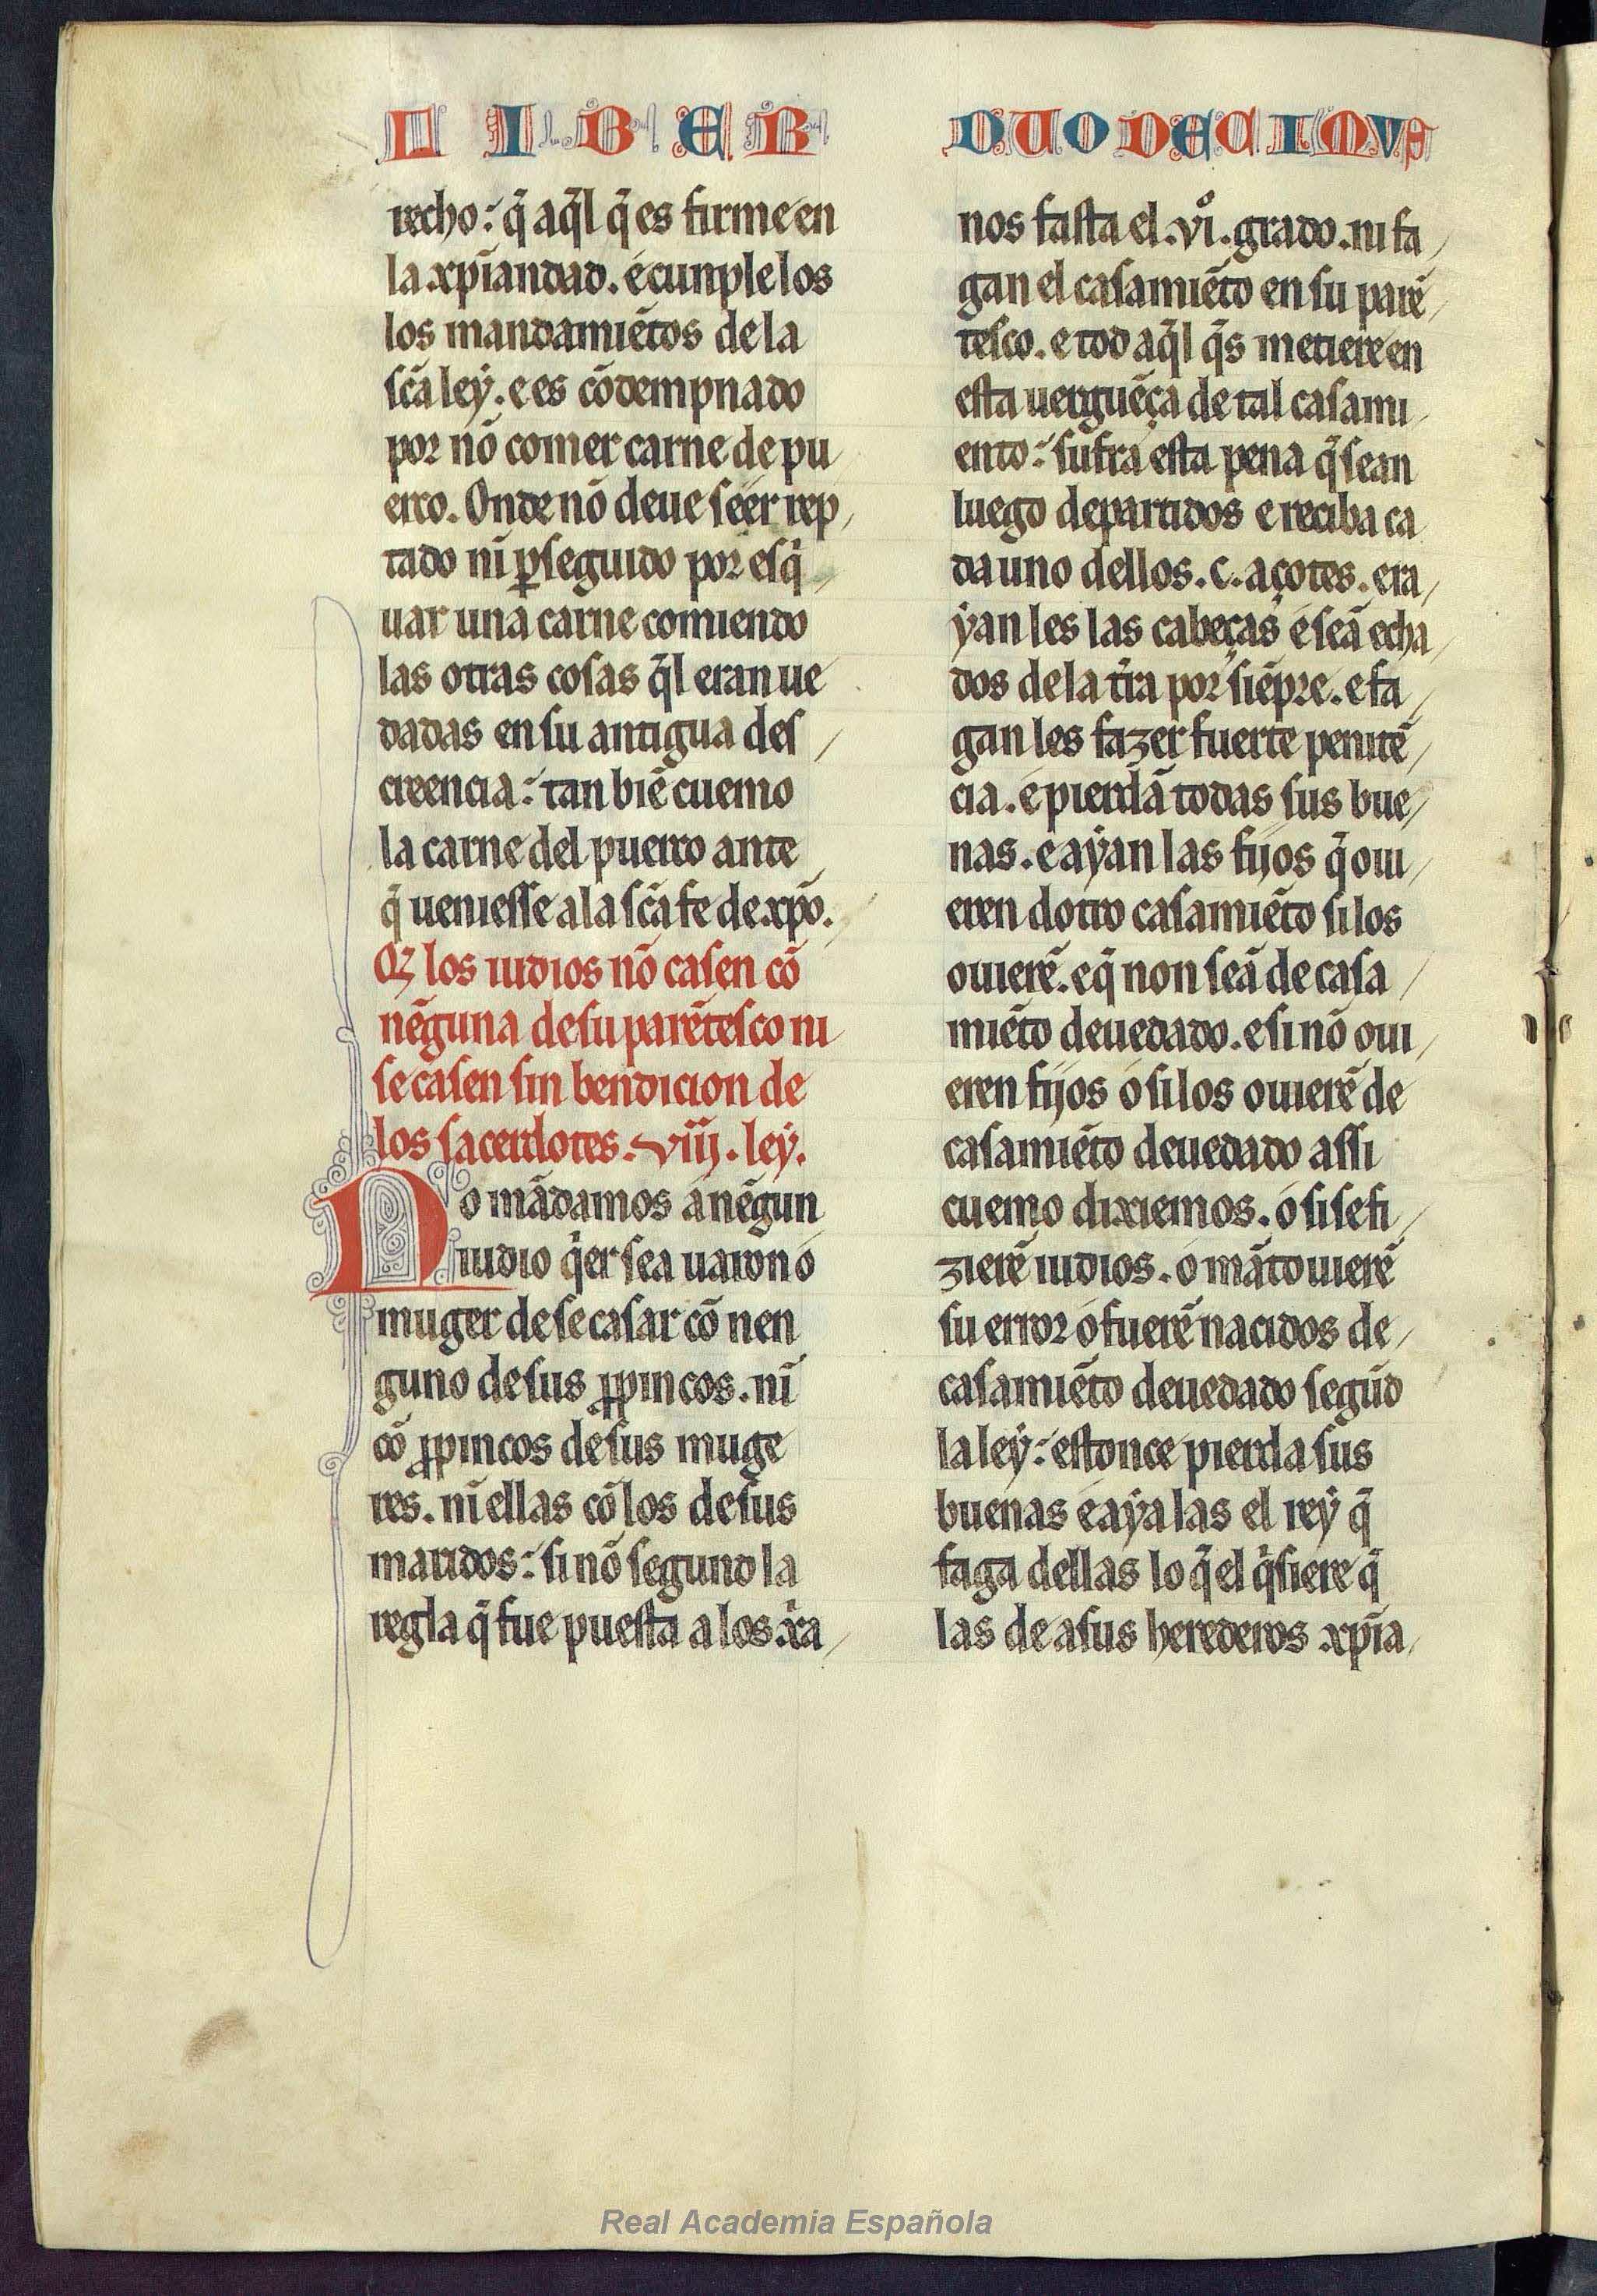 LIBER DUODECIMUS
recho: q̄ aq̄l q̄ es firme en
la xp̄iandad. e cunple los
los mandamiētos de la
sc̄a leẏ. e es cōdempnado
por nō comer carne de pu
erco. Onde nō deue seer rep
tado nī ꝑseguido por esq̇
uar una carne comiendo
las otras cosas q̄l eran ue
dadas en su antigua des
creencia: tan biē cuemo
la carne del puerco ante
q̄ ueniesse a la sc̄a fe de xp̄o.
Qꝫ los iudios nō casen cō
nēguna de su parētesco ni
se casen sin bendicion de
los sacerdotes. viij. leẏ.
No mādamos a nēgun
iudio q̇er sea uaron o
muger de se casar cō nen
guno de sus ꝓpincos. nī
cō ꝓpincos de sus muge
res. nī ellas cō los de sus
maridos: si nō segund la
regla q̄ fue puesta a los xr̄a
nos fasta el .viº. grado. ni fa
gan el casamiēto en su parē
tesco. e tod aq̄l q̄s metiere en
esta uerguēça de tal casami
ento: sufra esta pena q̄ sean
luego departidos e reciba ca
da uno dellos .c. açotes. e ra
ẏan les las cabeças e seā echa
dos de la tr̄ra por siēpre. e fa
gan les fazer fuerte penitē
cia. e pierdā todas sus bue
nas. e aẏan las fijos q̄ oui
eren dotro casamiēto si los
ouierē. e q̄ non seā de casa
miēto deuedado. e si nō oui
eren fijos o si los ouierē de
casamiēto deuedado assi
cuemo dixiemos. o si se fi
zierē iudios. o mātouierē
su error o fuerē nacidos de
casamiēto deuedado segūd
la leẏ: estonce pierda sus
buenas e aẏa las el reẏ q̄
faga dellas lo q̄ el q̇siere q̄
las de a sus herederos xp̄ia
Real Academia Española